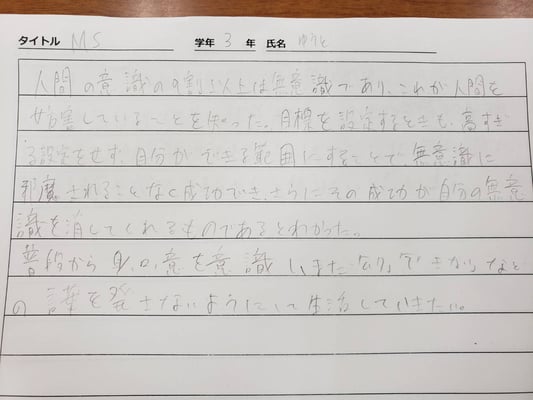 タイトル MS 学年 3 年 氏名 ゆうと
人間の意識の9割以上は無意識であり、これが人間を
妨害していることを知った。目標を設定するときも、高すぎ
る設定をせず、自分ができる範囲にすることで無意識に
邪魔されることなく成功でき、さらにその成功が自分の無意
識を消してくれるものであるとわかった。
普段から身、口、意を意識し、また
の言葉を発さないようにして生活していきたい。